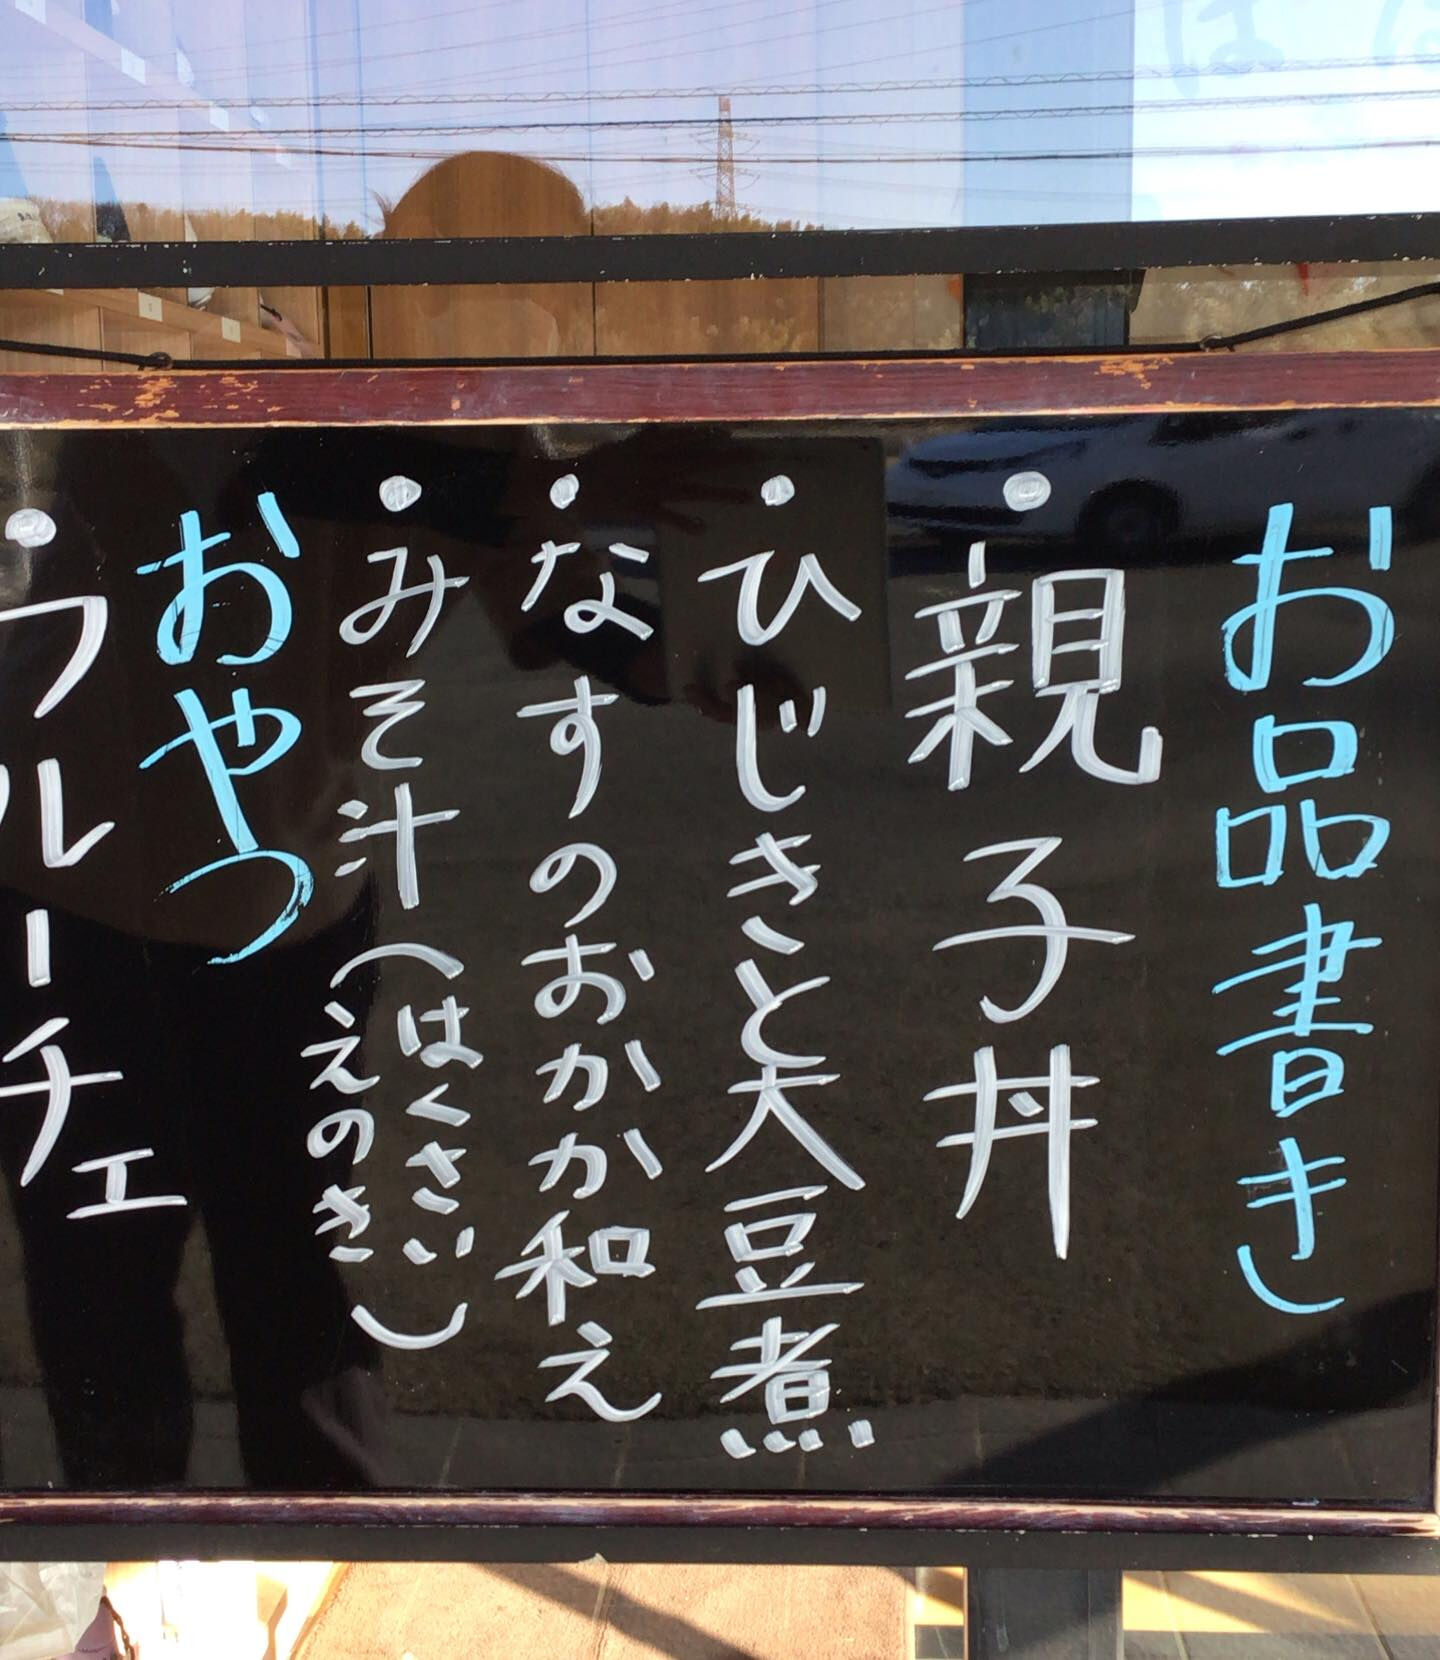 お品書き
・親子丼
・ひじきと大豆煮
・なすのおかか和え
・みそ汁（はくさい
えのき）
おやつ
・フルーチェ